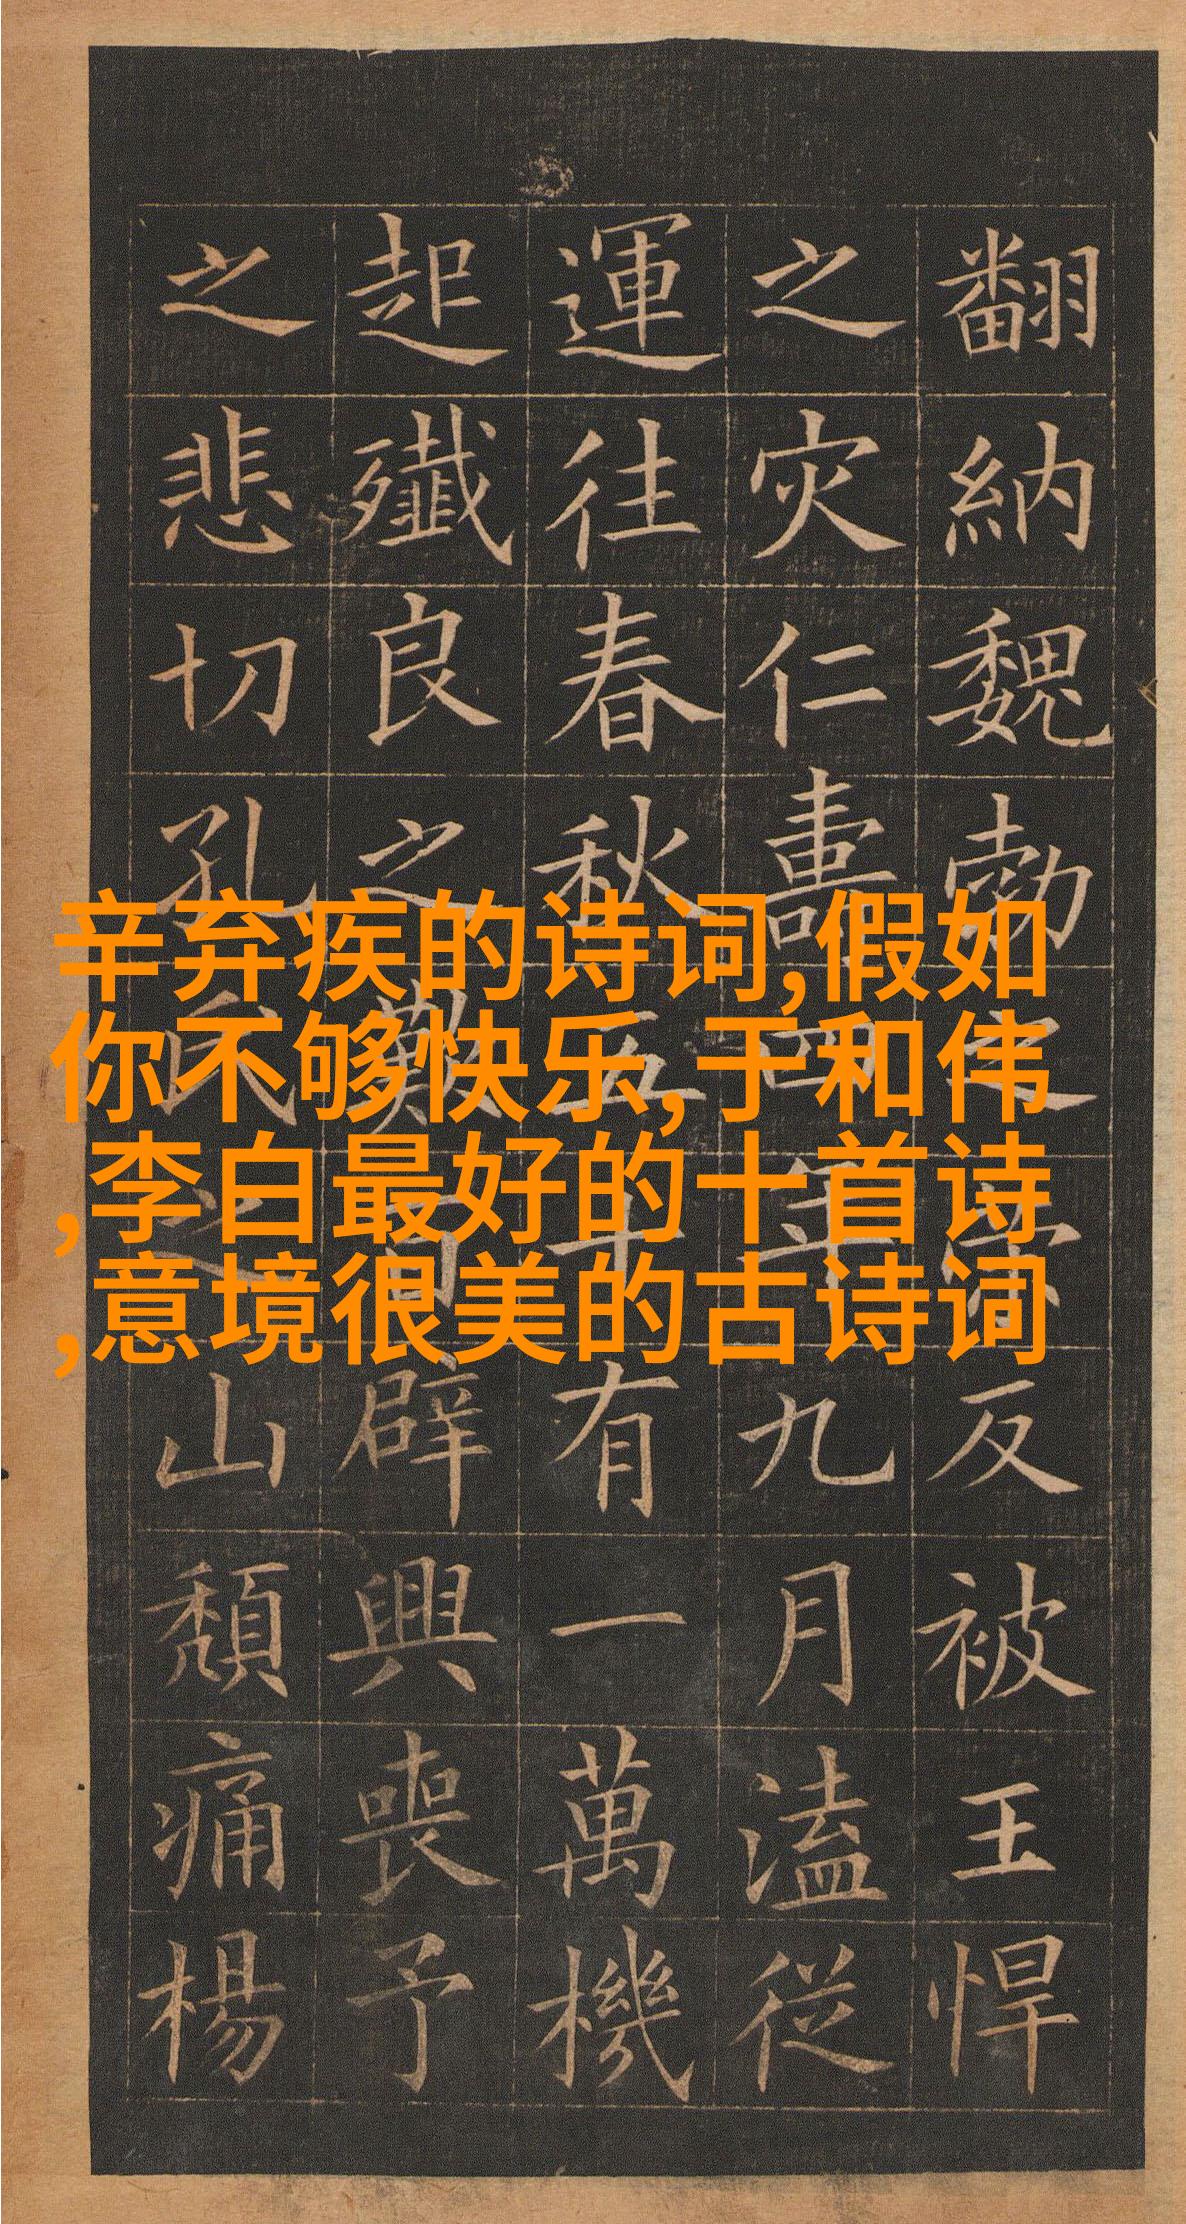 翻納魏勃之反被王悍
之灾仁壽四年九月溘從
運往春秋五十有一萬機
起殲良之歎百辟興喪予
之悲切孔氏之山頹痛楊
辛弃疾的诗词,假如
你不够快乐,于和伟
,李白最好的十首诗
,意境很美的古诗词